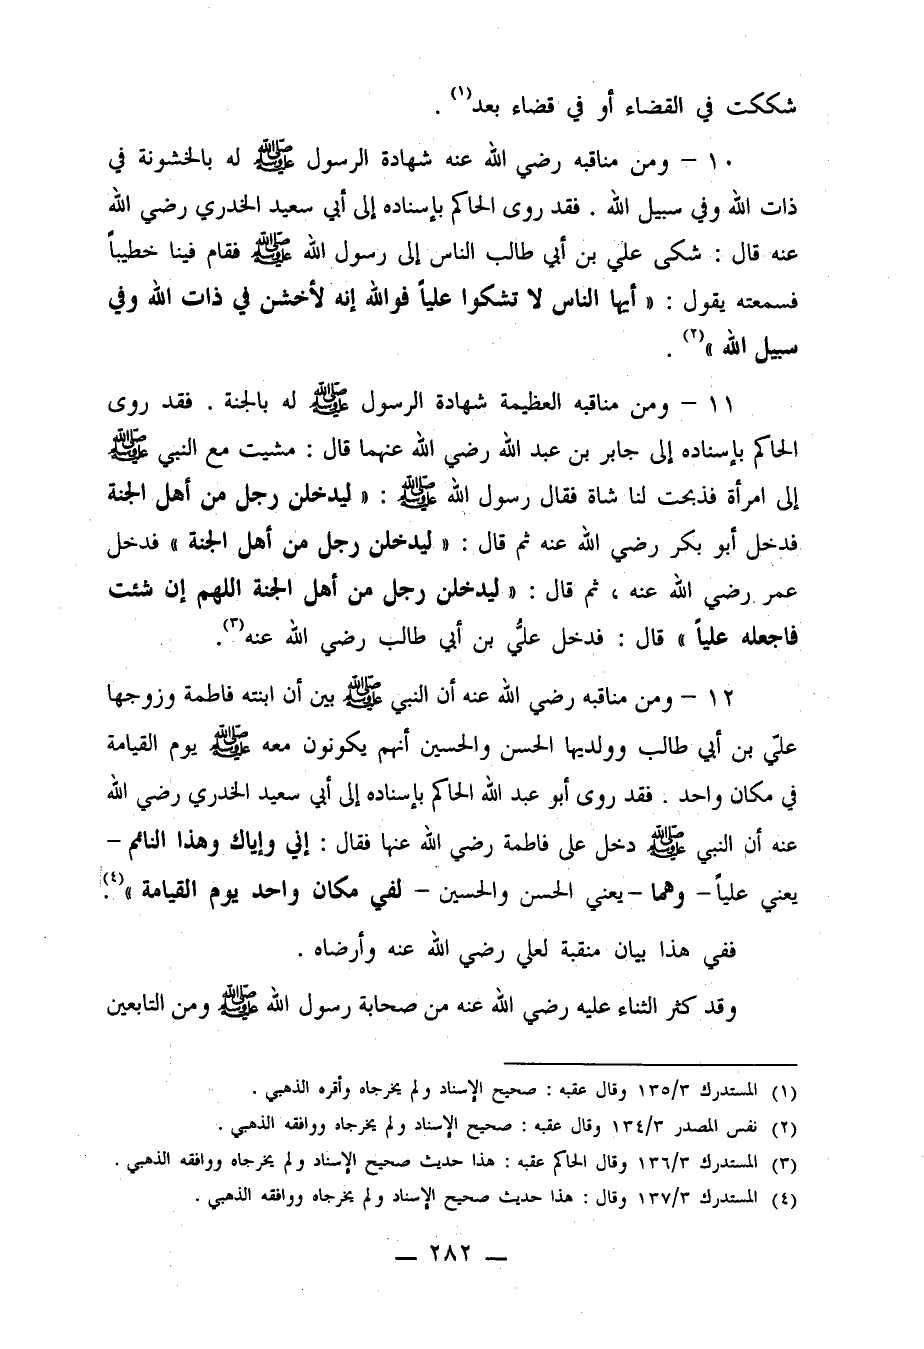 شككت في القضاء أو في قضاء بعد(١) .
١٠ – ومن مناقبه رضي الله عنه شهادة الرسول ﷺ له بالخشونة في
ذات الله وفي سبيل الله . فقد روى الحاكم بإسناده إلى أبي سعيد الخدري رضي الله
عنه قال : شكى علي بن أبي طالب الناس إلى رسول الله ﷺ فقام فينا خطيباً
فسمعته يقول : « أيها الناس لا تشكوا علياً فوالله إنه لأخشن في ذات الله وفي
سبيل الله »(٢) .
١١ – ومن مناقبه العظيمة شهادة الرسول ﷺ له بالجنة . فقد روى
الحاكم بإسناده إلى جابر بن عبد الله رضي الله عنهما قال : مشيت مع النبي ﷺ
إلى امرأة فذبحت لنا شاة فقال رسول الله ﷺ : « ليدخلن رجل من أهل الجنة
فدخل أبو بكر رضي الله عنه ثم قال : « ليدخلن رجل من أهل الجنة » فدخل
عمر رضي الله عنه ، ثم قال : « ليدخلن رجل من أهل الجنة اللهم إن شئت
فاجعله علياً » قال : فدخل عليُّ بن أبي طالب رضي الله عنه(٣).
١٢ – ومن مناقبه رضي الله عنه أن النبي ﷺ بين أن ابنته فاطمة وزوجها
عليّ بن أبي طالب وولديها الحسن والحسين أنهم يكونون معه ﷺ يوم القيامة
في مكان واحد . فقد روى أبو عبد الله الحاكم بإسناده إلى أبي سعيد الخدري رضي الله
عنه أن النبي ﷺ دخل على فاطمة رضي الله عنها فقال : إني وإياك وهذا النائم –
يعني علياً – وهما – يعني الحسن والحسين – لفي مكان واحد يوم القيامة »(٤).
ففي هذا بيان منقبة لعلي رضي الله عنه وأرضاه .
وقد كثر الثناء عليه رضي الله عنه من صحابة رسول الله ﷺ ومن التابعين
(١) المستدرك ١٣٥/٣ وقال عقبه : صحيح الإسناد ولم يخرجاه وأقره الذهبي .
(٢) نفس المصدر ١٣٤/٣ وقال عقبه : صحيح الإسناد ولم يخرجاه ووافقه الذهبي .
(٣) المستدرك ١٣٦/٣ وقال الحاكم عقبه : هذا حديث صحيح الإسناد ولم يخرجاه ووافقه الذهبي .
(٤) المستدرك ١٣٧/٣ وقال : هذا حديث صحيح الإسناد ولم يخرجاه ووافقه الذهبي .
— ٢٨٢ —